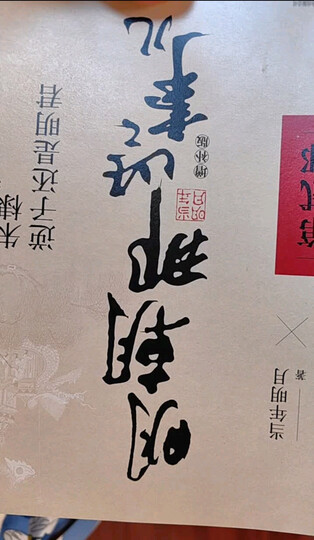 朱棣
逆子还是明君
明朝那些事儿
增补版
当年明月
当年明月 著